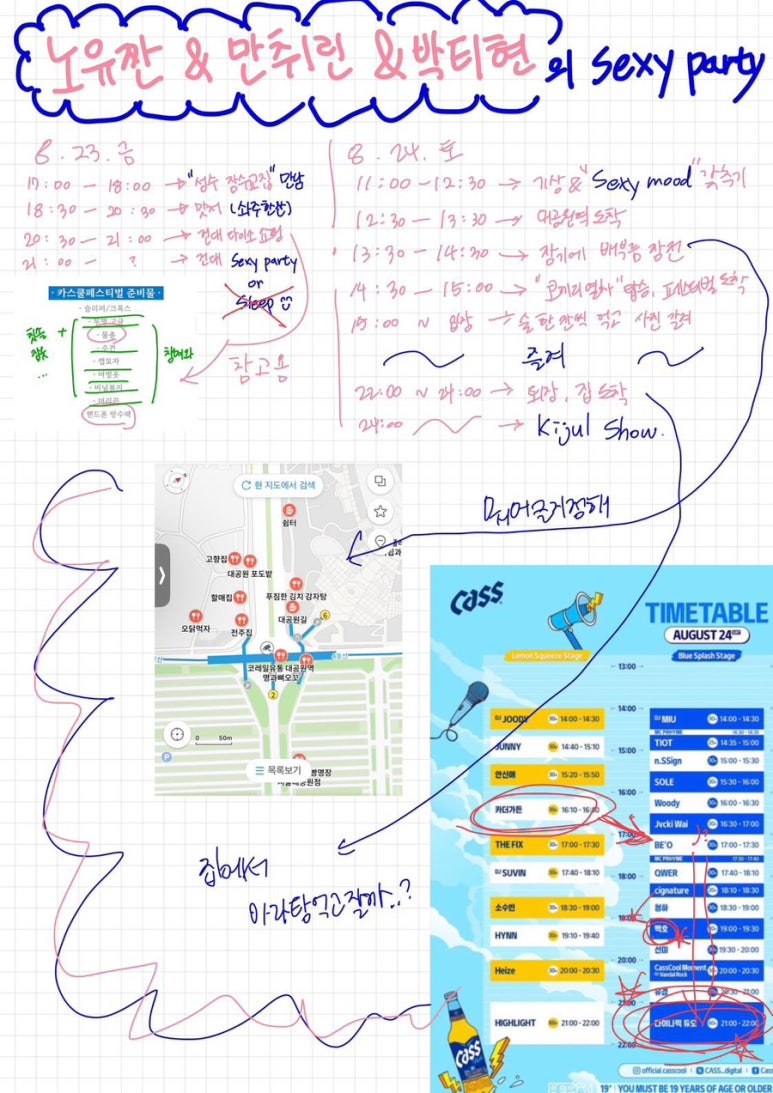 노유짠 & 만취린 & 박티현의 sexy party
8. 23. 금
17:00 - 18:00 → "성수 장수고집" 만남
18:30 - 20:30 → 맛저 (소주한잔)
20:30 - 21:00 → 건대 다이소 쇼핑
21:00 - ? → 건대 Sexy party
or
Sleep
· 카스쿨페스티벌 준비물 ·
· 슬리퍼/크록스
· 물총
· 수건
· 캡모자
· 여벌옷
· 비닐봉지
· 머리끈
핸드폰 방수팩
+
챙겨와
...
참고용
8. 24. 토
11:00 - 12:30 → 기상 & "Sexy mood" 갖추기
12:30 - 13:30 → 대공원역 도착
13:30 - 14:30 → 장기에 배부름 장전
14:30 - 15:00 → "코끼리열차" 탑승, 페스티벌 도착
15:00 ~ 입장 → 술 한 잔씩 먹고 사진 갈겨
즐겨
22:00 ~ 24:00 → 퇴장, 집 도착
24:00 → Kijul Show.
뭐먹을거정해
현 지도에서 검색
쉼터
고향집
대공원 포도밭
할매집
푸짐한 김치 감자탕
대공원길
오닭먹자
전주집
6
4호선
코레일유통 대공원역
명과빠오꼬
2
0 50m
목록보기
집에서
마라탕먹고잘까..?
Cass
TIMETABLE
AUGUST 24 SAT
Lemon Squeeze Stage
Blue Splash Stage
13:00
14:00
DJ JOODY 30m 14:00 - 14:30
DJ MIU 30m 14:00 - 14:30
MC PRHYME 14:30 - 14:35
JUNNY 30m 14:40 - 15:10
TIOT 25m 14:35 - 15:00
15:00
n.SSign 30m 15:00 - 15:30
안신애 30m 15:20 - 15:50
SOLE 30m 15:30 - 16:00
16:00
카더가든 30m 16:10 - 16:40
Woody 30m 16:00 - 16:30
Jvcki Wai 30m 16:30 - 17:00
17:00
THE FIX 30m 17:00 - 17:30
BE'O 30m 17:00 - 17:30
MC PRHYME 17:30 - 17:40
DJ SUVIN 30m 17:40 - 18:10
QWER 30m 17:40 - 18:10
18:00
cignature 20m 18:10 - 18:30
소수빈 30m 18:30 - 19:00
청하 30m 18:30 - 19:00
19:00
HYNN 30m 19:10 - 19:40
백호 30m 19:00 - 19:30
선미 30m 19:30 - 20:00
20:00
Heize 30m 20:00 - 20:30
CassCool Moment
DJ Vandal Rock 30m 20:00 - 20:30
유겸 30m 20:30 - 21:00
21:00
HIGHLIGHT 60m 21:00 - 22:00
다이나믹 듀오 60m 21:00 - 22:00
22:00
Cass
official.casscool CASS_.digital
19+ YOU MUST BE 19 YEARS OF AGE OR OLDER